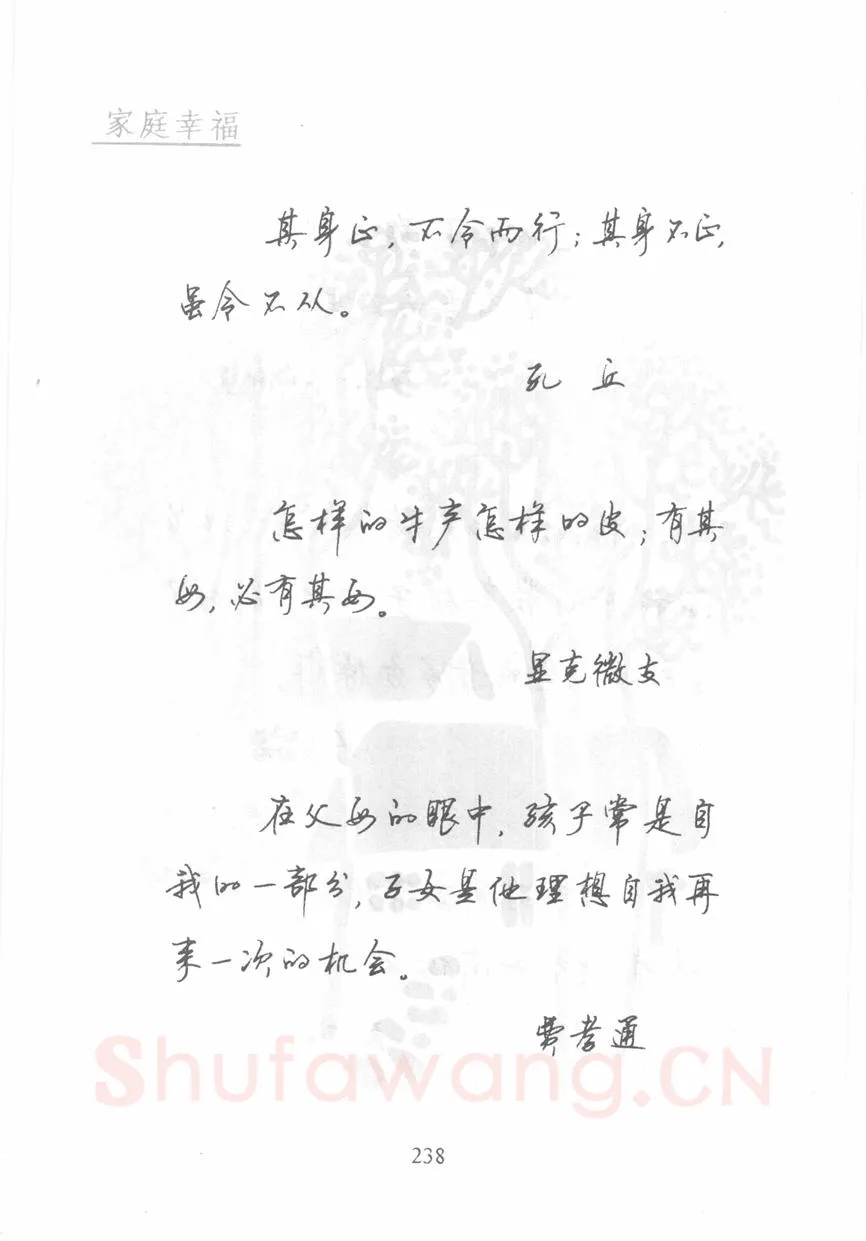 家庭幸福
其身正，不令而行；其身不正，
虽令不从。
孔 丘
怎样的牛产怎样的皮；有其
母，必有其女。
显克微支
在父母的眼中，孩子常是自
我的一部分，子女是他理想自我再
来一次的机会。
费孝通
Shufawang.CN
238